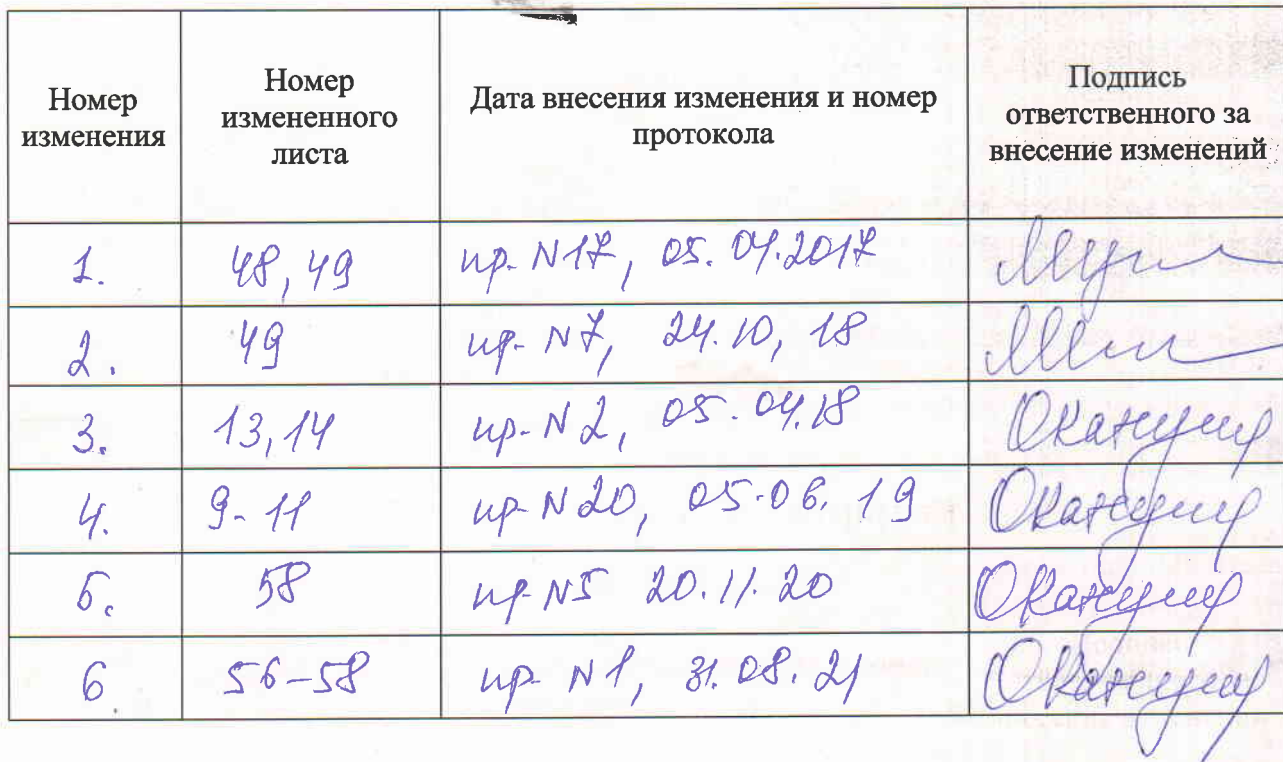 Номер изменения
Номер измененного листа
Дата внесения изменения и номер протокола
Подпись ответственного за внесение изменений
1. 48, 49 пр. N17, 05.07.2017
2. 49 пр. N7, 24.10, 18
3. 13, 14 пр. N2, 05.04.18
4. 9-11 пр. N20, 05.06.19
5. 58 пр. N5 20.11.20
6 56-58 пр. N1, 31.08.21